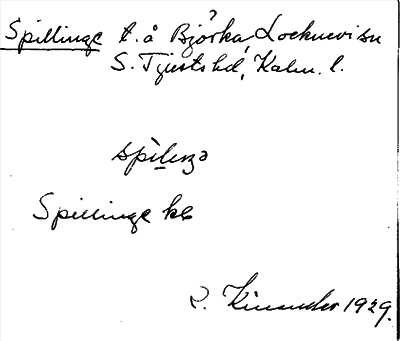 Spillinge t. å Björka, Locknevi sn
S. Tjusts hd, Kalm. l.
spìlenga
Spillinge kb
R. Kinander 1929.